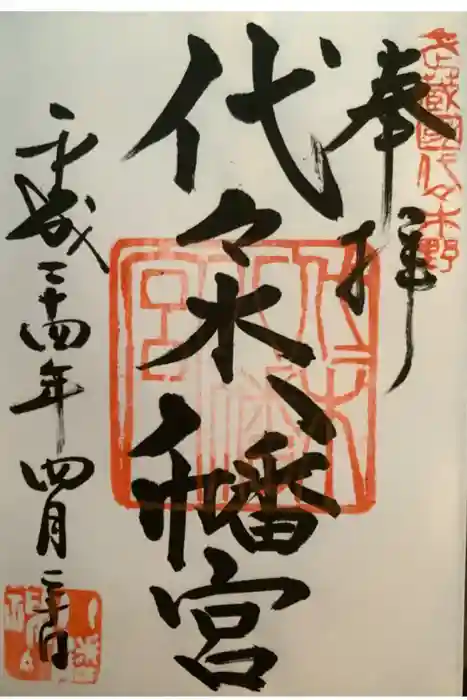 武蔵國代々木野
奉拝
代々木八幡宮
平成二十四年四月二十日